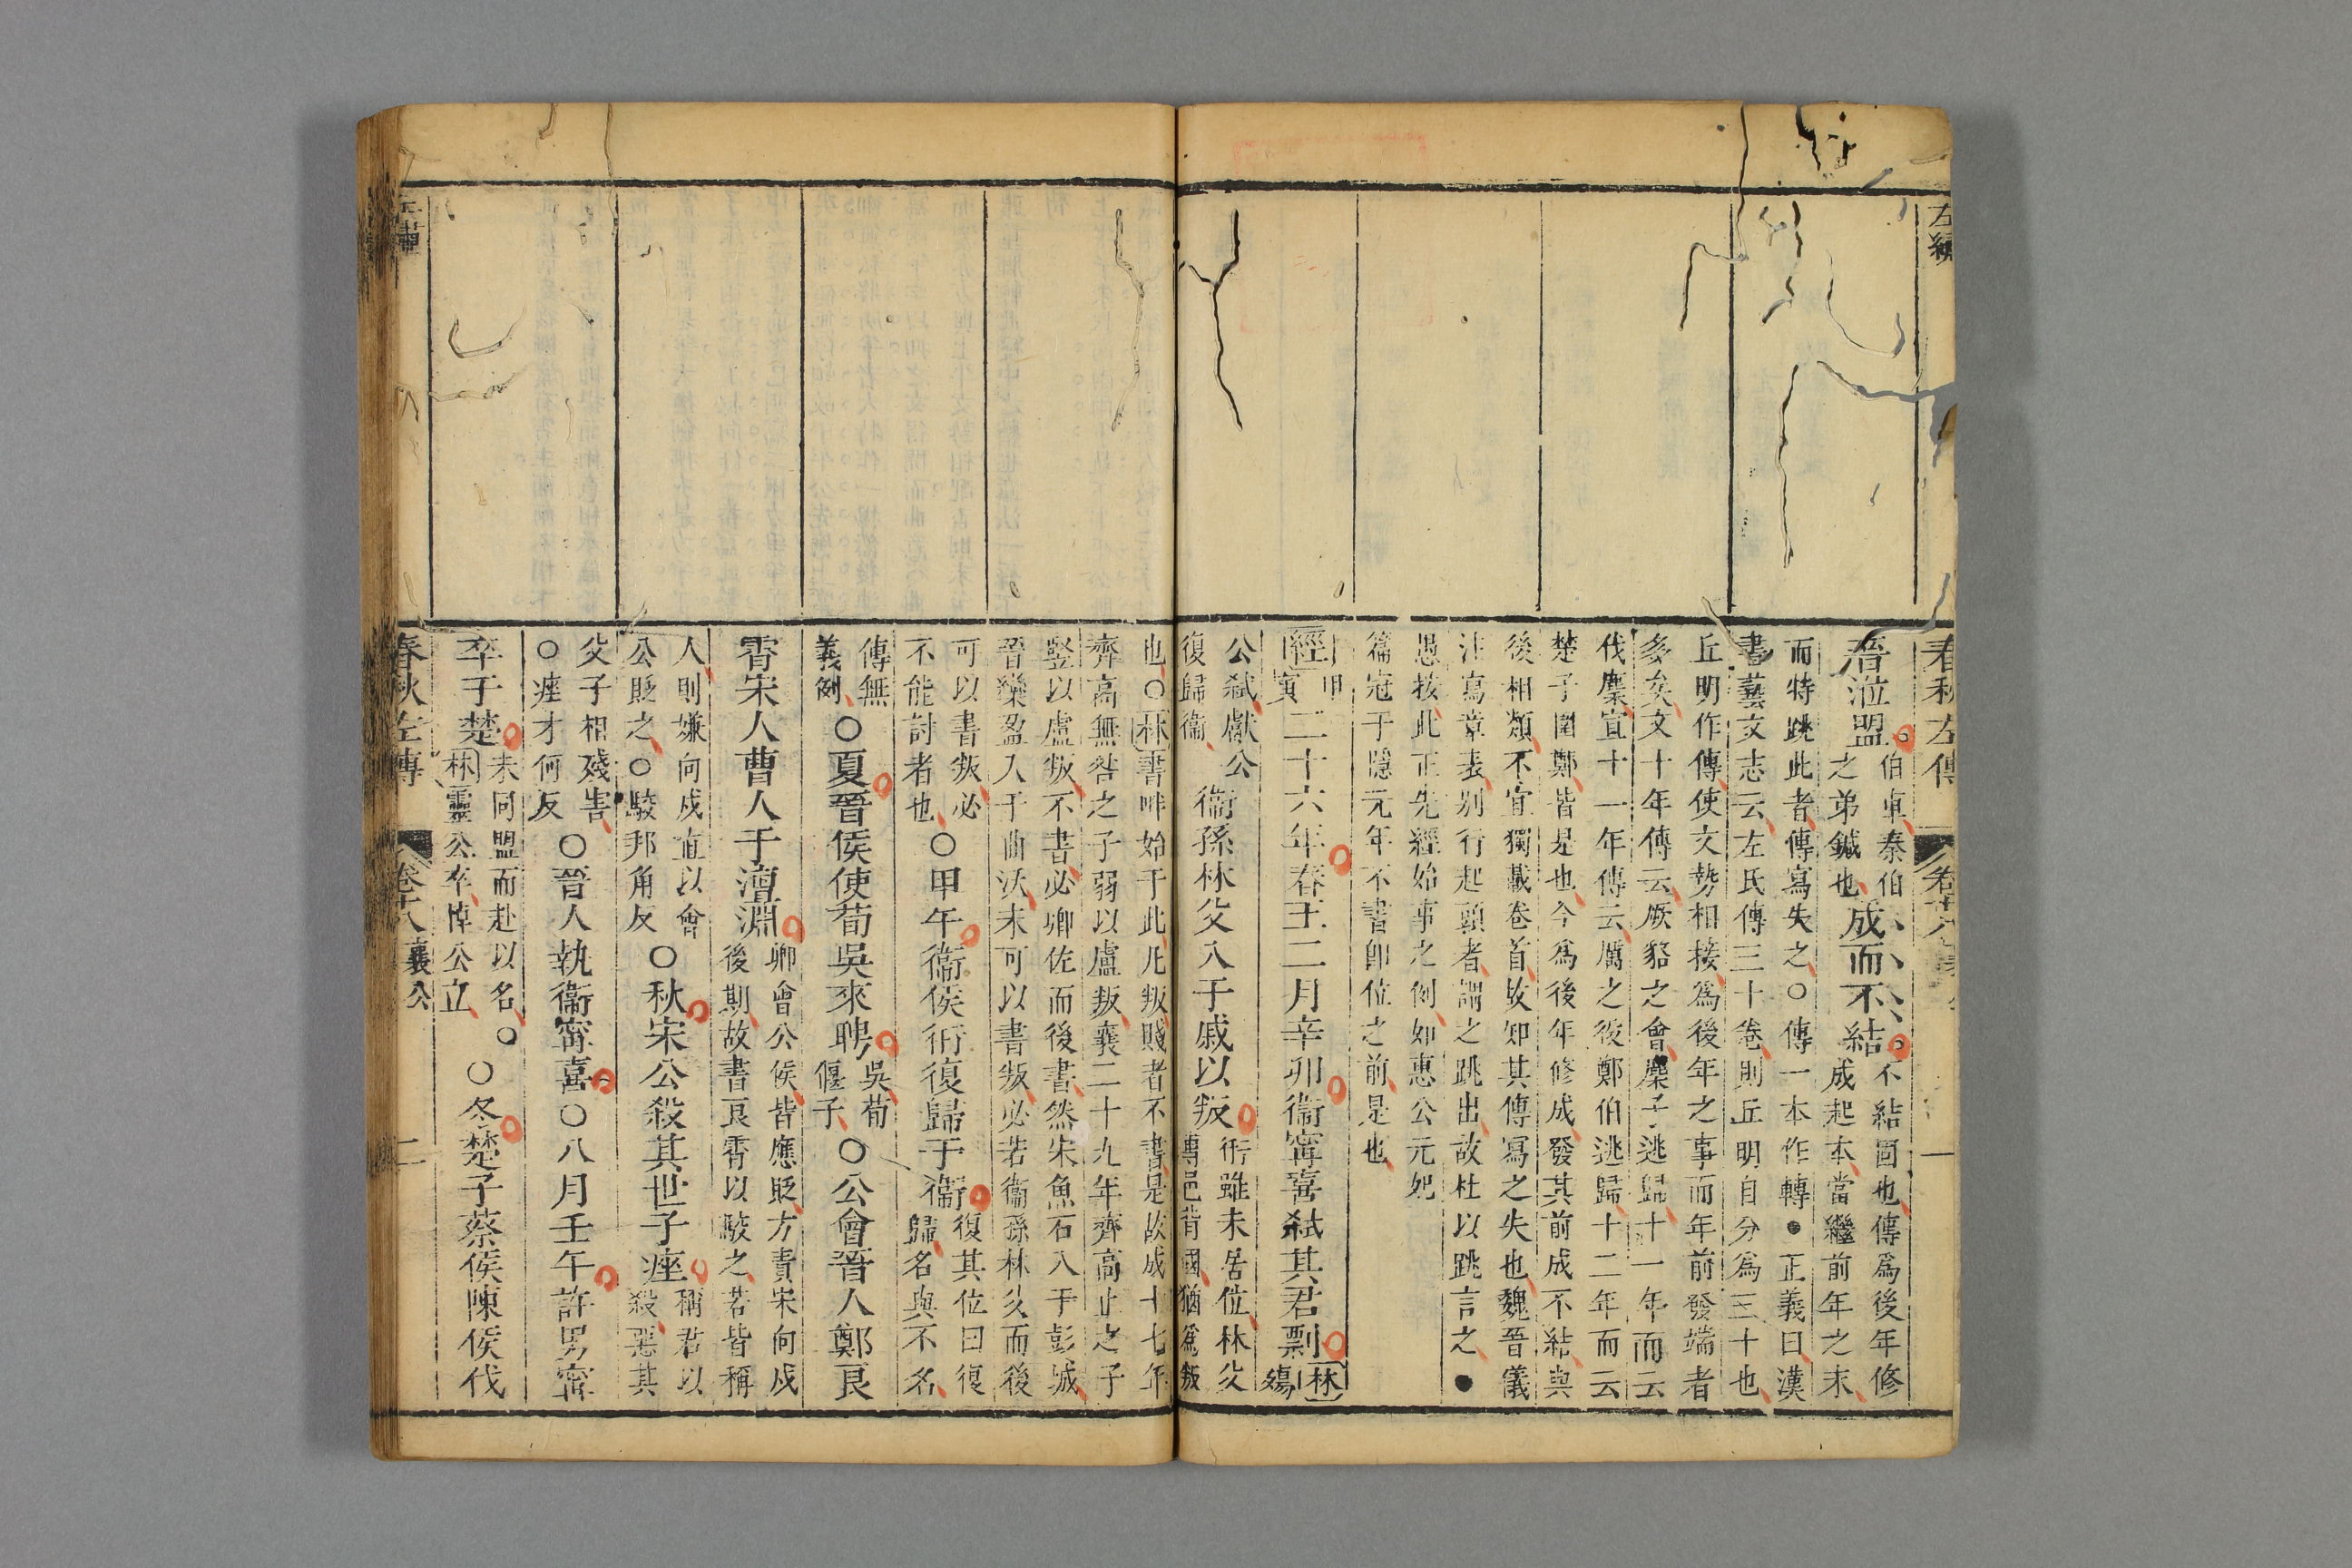 左繡
春秋左傳
卷十八
襄公
一
晉涖盟
伯車秦伯
之弟鍼也
成而不結
不結固也傳爲後年修
成起本當繼前年之末
而特跳此者傳寫失之○傳一本作轉●正義曰漢
書藝文志云左氏傳三十卷則丘明自分爲三十也
丘明作傳使文勢相接爲後年之事而年前發端者
多矣文十年傳云厥貉之會麇子逃歸十一年而云
伐麇宣十一年傳云厲之役鄭伯逃歸十二年而云
楚子圍鄭皆是也今爲後年修成發其前成不結與
後相類不宜獨載卷首故知其傳寫之失也魏晉儀
注寫章表别行起頭者謂之跳出故杜以跳言之●
愚按此正先經始事之例如惠公元妃
篇冠于隱元年不書卽位之前是也
經
甲
寅
二十六年春王二月辛卯衞寗喜弒其君剽
林
殤
公弒獻公
復歸衞
衞孫林父入于戚以叛
衎雖未居位林父
專邑背國猶爲叛
也○林書叛始于此凡叛賤者不書是故成十七年
齊高無咎之子弱以盧叛襄二十九年齊高止之子
豎以盧叛不書必卿佐而後書然宋魚石入于彭城
晉欒盈入于曲沃未可以書叛必若衞孫林父而後
可以書叛必
不能討者也
○甲午衞侯衎復歸于衞
復其位曰復
歸名與不名
傳無
義例
○夏晉侯使荀吳來聘
吳荀
偃子
○公會晉人鄭良
霄宋人曹人于澶淵
卿會公侯皆應貶方責宋向戌
後期故書良霄以駮之若皆稱
人則嫌向戌直以會
公貶之○駮邦角反
○秋宋公殺其世子痤
稱君以
殺惡其
父子相殘害
○痤才何反
○晉人執衞寗喜○八月壬午許男甯
卒于楚
未同盟而赴以名○
林靈公卒悼公立
○冬楚子蔡侯陳侯伐
春秋左傳
卷十八
襄公
二